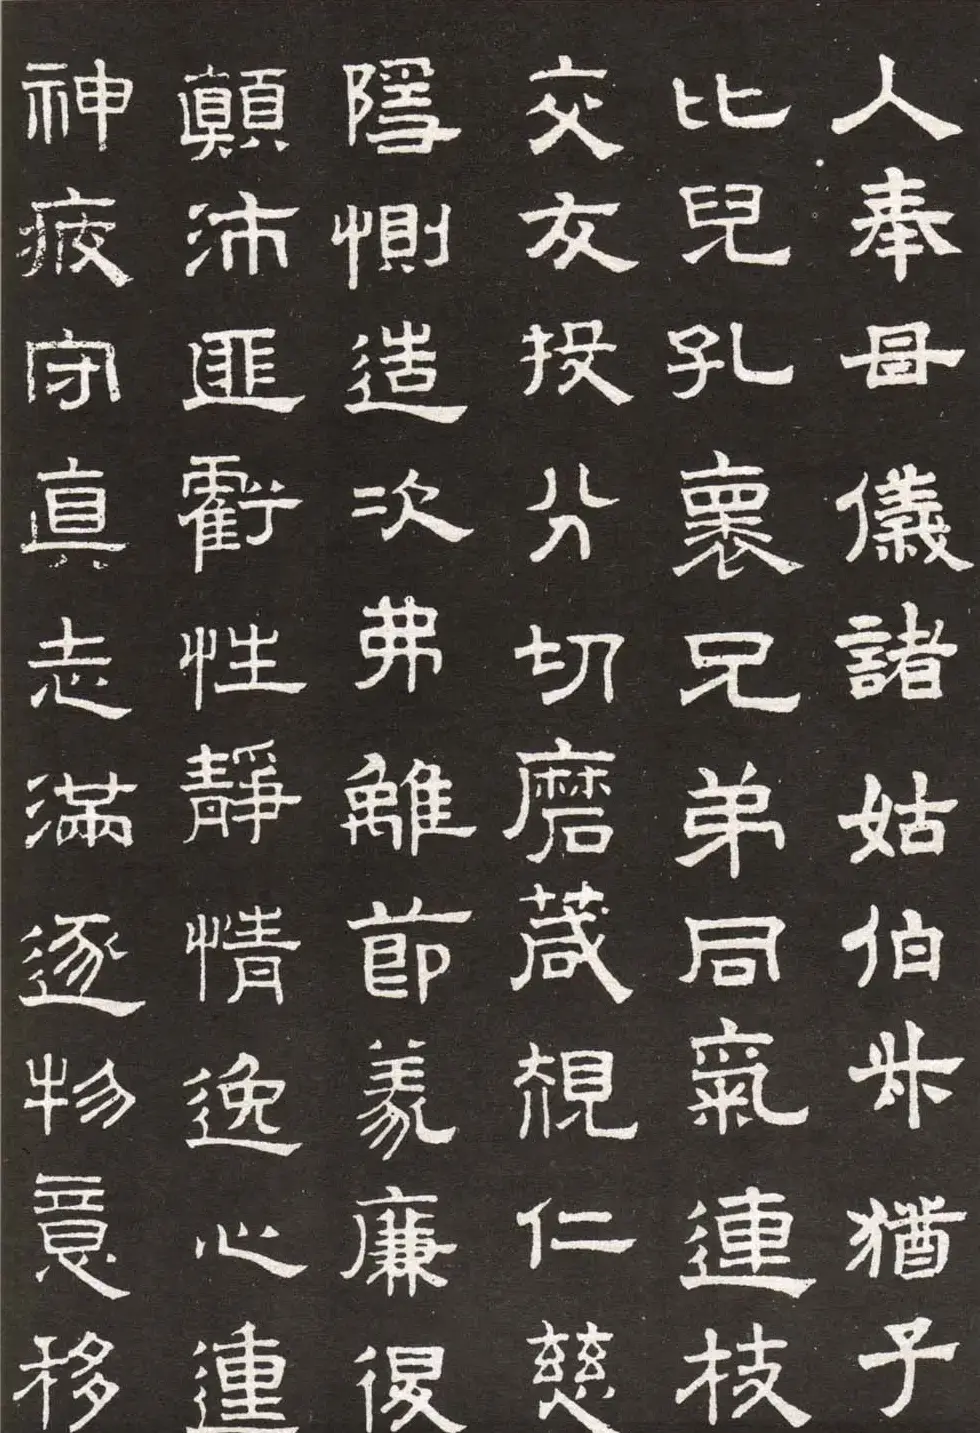 人奉母儀諸姑伯叔猶子
比兒孔褱兄弟同氣連枝
交友投分切磨葴規仁慈
隱惻造次弗離節義廉退
顛沛匪虧性靜情逸心動
神疲守真志滿逐物意移